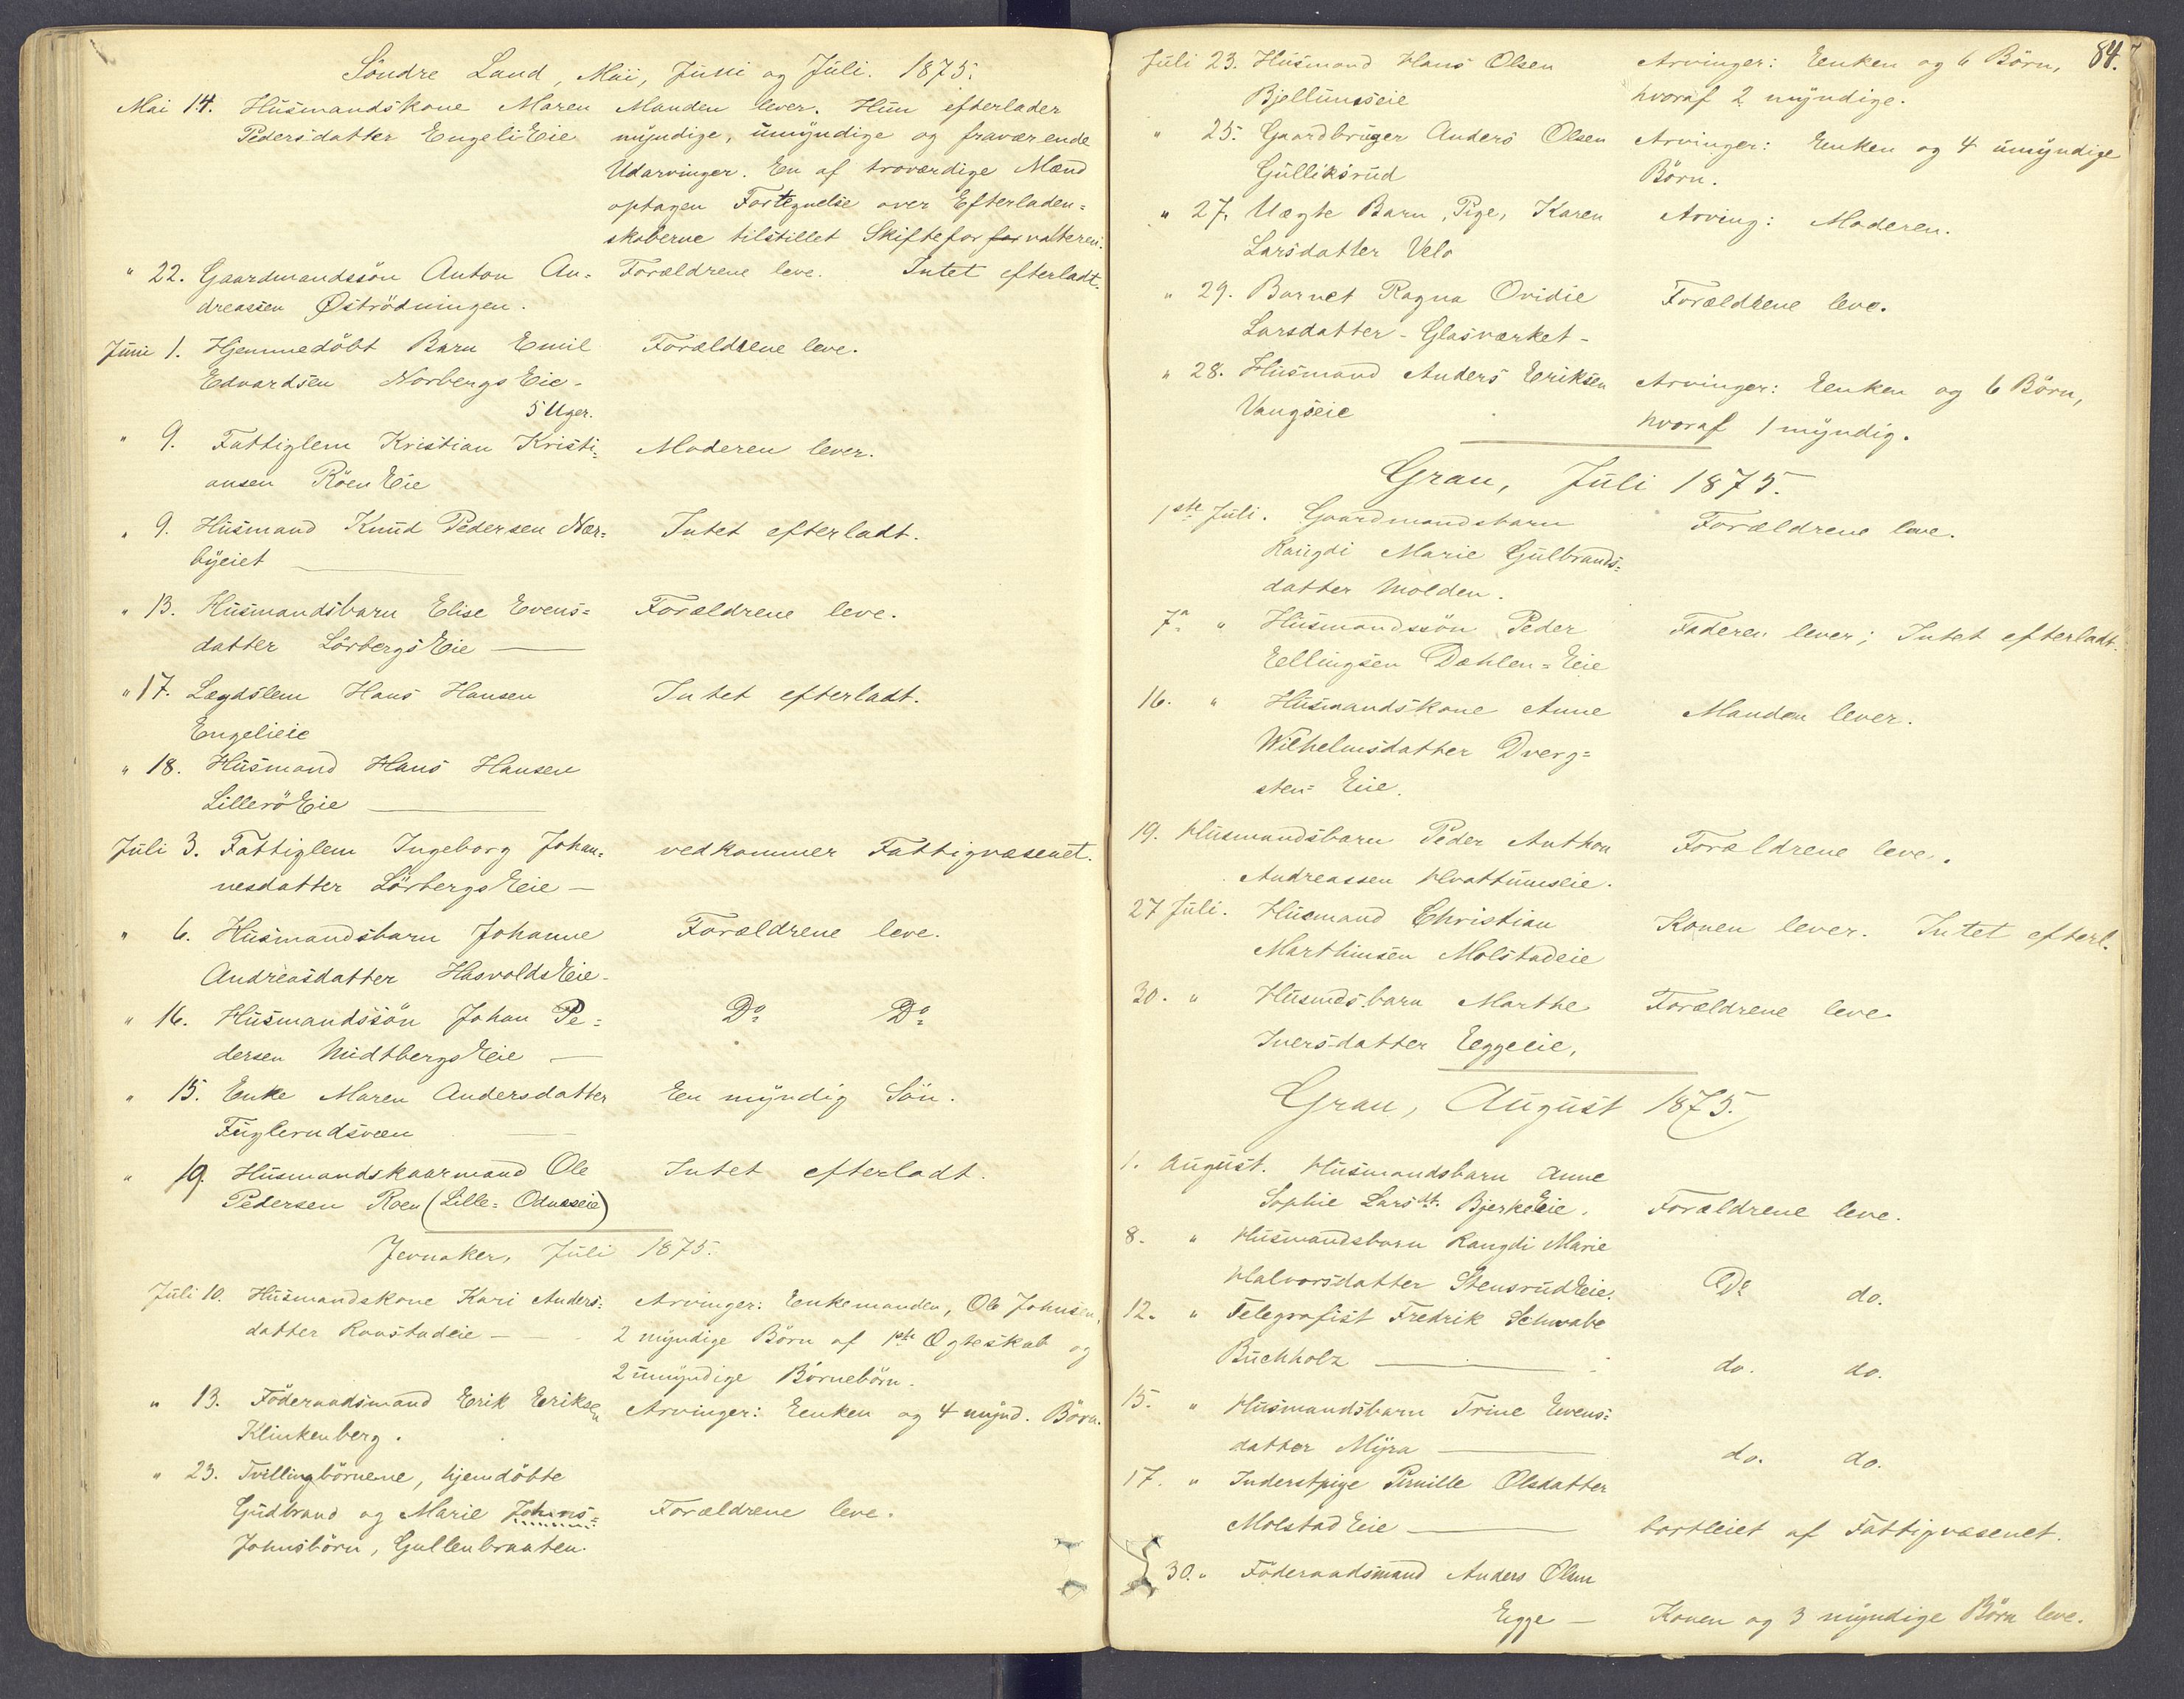 Söndre Land, Mai, Juni og Juli. 1875.
Mai 14. Husmandskone Maren Manden lever. Hun efterlader
Pedersdatter EngeliEie myndige, umyndige og fraværende
Udarvinger. En af troværdige Mænd
optagen Fortegnelse over Efterladen=
skaberne tilstillet Skiftefor for valteren.
" 22. Gaardmandssön Anton An= Forældrene leve. Intet efterladt.
dreassen Öströdningen.
Juni 1. Hjemmedöbt Barn Emil Forældrene leve.
Edvardsen Norbergs Eie-
5 Uger.
" 9. Fattiglem Kristian Kristi= Moderen lever.
ansen Röen Eie
" 9. Husmand Knud Pedersen Nær= Intet efterladt.
byeiet
" 13. Husmandsbarn Elise Evens= Forældrene leve.
datter Lörbergs Eie —
" 17. Lægdslem Hans Hansen Intet efterladt.
Engelieie
" 18. Husmand Hans Hansen
LilleröEie —
Juli 3. Fattiglem Ingeborg Johan= vedkommer Fattigvæsenet.
nesdatter Lörbergs Eie —
" 6. Husmandsbarn Johanne Forældrene leve.
Andreasdatter Hasvolds Eie-
" 16. Husmandssön Johan Pe= Do Do
dersen Midtbergs Eie —
" 15. Enke Maren Andersdatter En myndig Sön.
Fuglerudsveen —
" 19. Husmandskaarmand Ole Intet efterladt.
Pedersen Roen (Lille= Odnæseie)
Jevnaker, Juli 1875.
Juli 10. Husmandskone Kari Anders= Arvinger: Enkemanden, Ole Johnsen,
datter Raastadeie — 2 myndige Börn af 1ste Ægteskab og
2 umyndige Börnebörn.
" 13. Föderaadsmand Erik Eriksen Arvinger: Enken og 4 mynd. Börn.
Klinkenberg.
" 23. Tvillingbörnene, hjemdöbte
Gudbrand og Marie Johns= Forældrene leve.
Johnsbörn, Gullenbraaten.
84.
Juli 23. Husmand Hans Olsen Arvinger: Enken og 6 Börn,
Bjellumseie hvoraf 2 myndige.
" 25. Gaardbruger Anders Olsen Arvinger: Enken og 4 umyndige
Gulliksrud Börn.
" 27. Uægte Barn, Pige, Karen Arving: Moderen.
Larsdatter Velo
" 29. Barnet Ragna Ovidie Forældrene leve.
Larsdatter - Glasværket -
" 28. Husmand Anders Eriksen Arvinger: Enken og 6 Börn,
Vangseie hvoraf 1 myndig.
Gran, Juli 1875.
1ste Juli. Gaardmandsbarn Forældrene leve.
Rangdi Marie Gulbrands=
datter Molden.
7. " Husmandssön Peder Faderen lever; Intet efterladt.
Ellingsen Dæhlen= Eie
16. " Husmandskone Anne Manden lever.
Wilhelmsdatter Dverg=
sten= Eie.
19. Husmandsbarn Peder Anthon Forældrene leve.
Andreassen Hvattumseie.
27 Juli. Husmand Christian Konen lever. Intet efterl.
Marthinsen Molstadeie
30. " Husmdsbarn Marthe Forældrene leve.
Iversdatter Eggeeie.
Gran, August 1875.
1. August. Husmandsbarn Anne
Sophie Larsdt. BjerkeEie. Forældrene leve.
8. " Husmandsbarn Rangdi Marie
Halvorsdatter StensrudEie. Do do.
12. " Telegrafist Fredrik Schwabe
Buchholz — do. do.
15. " Husmandsbarn Trine Evens=
datter Myra — do. do.
17. " Inderstpige Pernille Olsdatter
Molstad Eie — bortleiet af Fattigvæsenet.
30. " Föderaadsmand Anders Olsen
Egge — Konen og 3 myndige Börn leve.